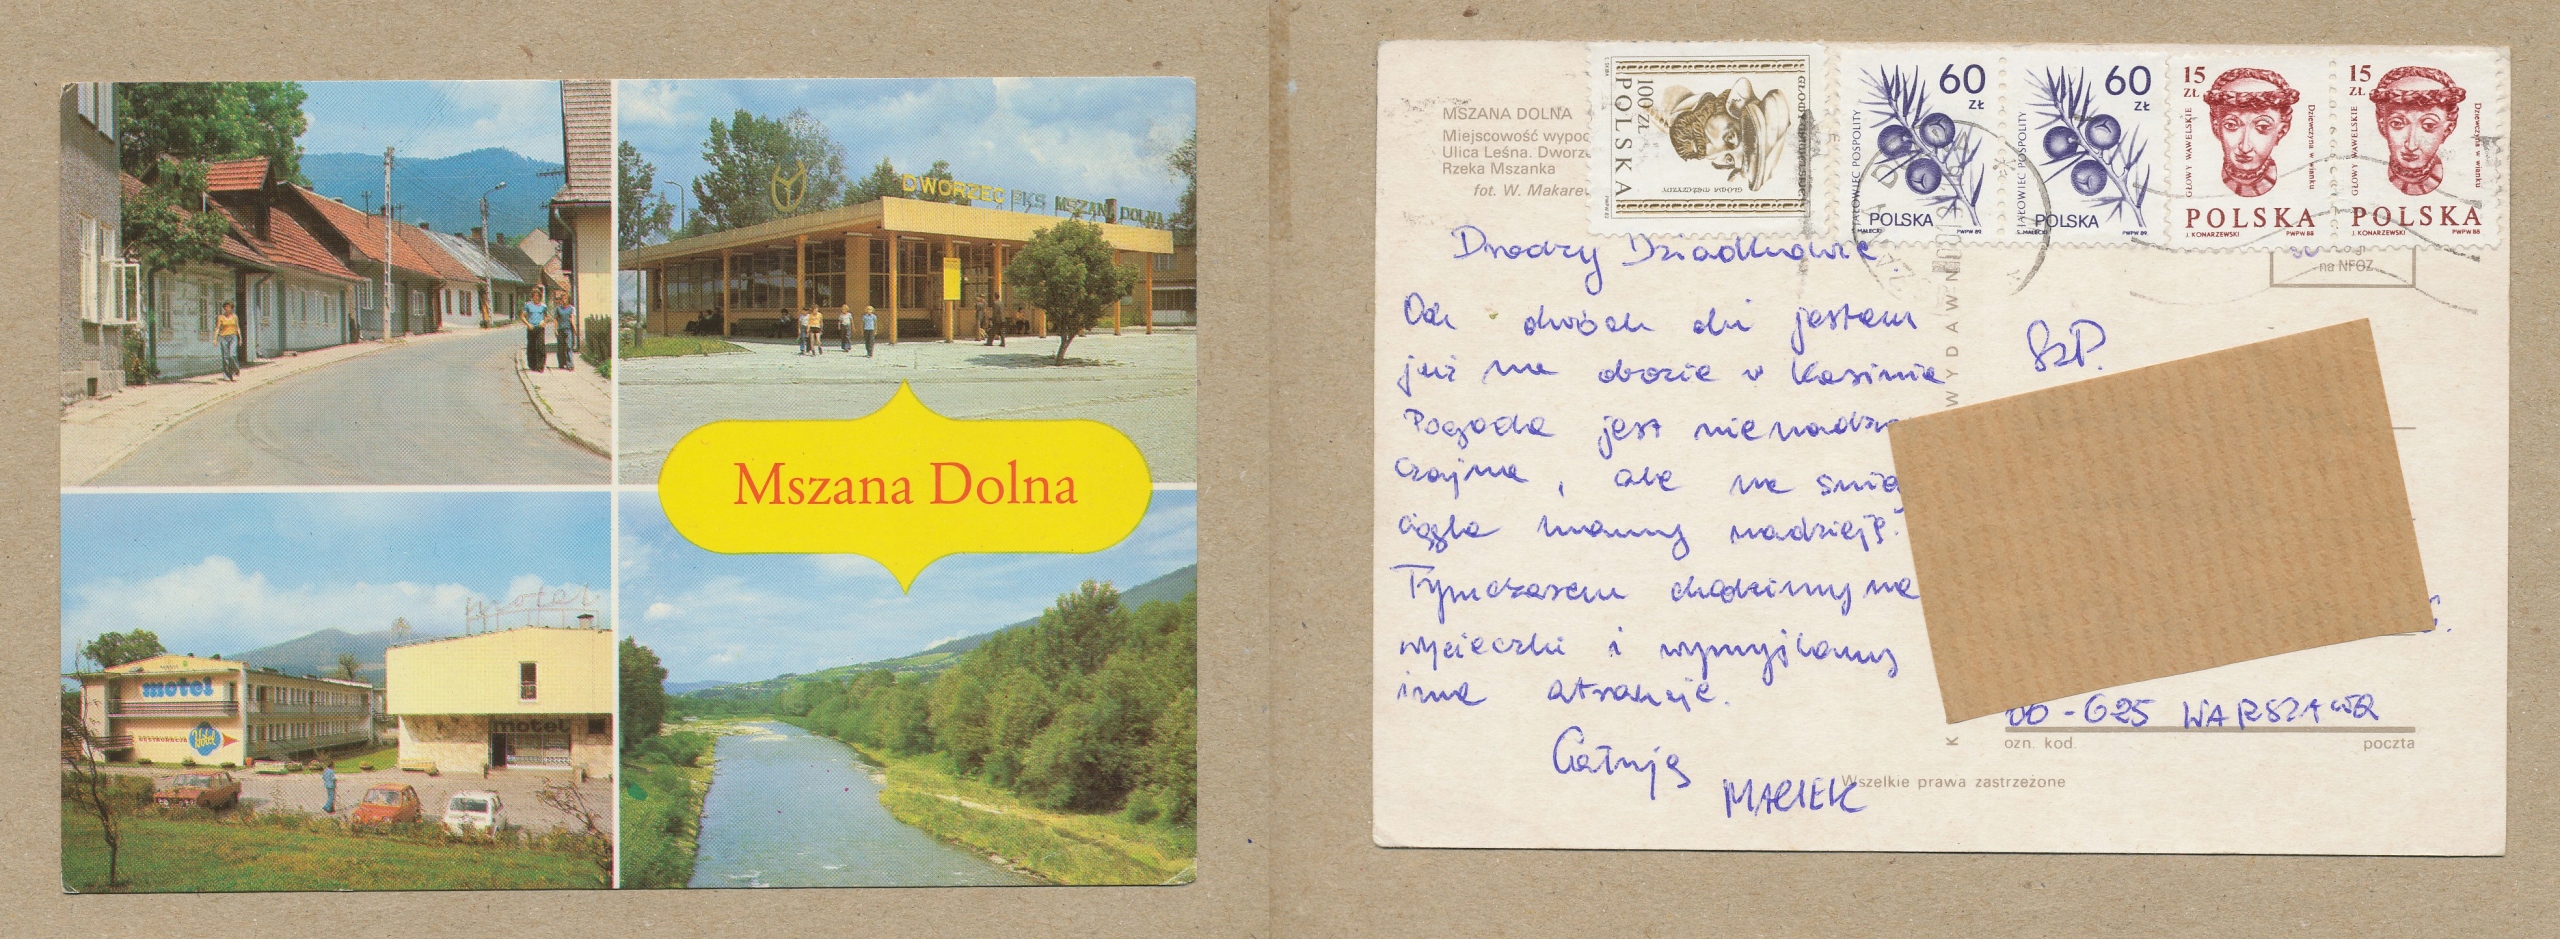 DWORZEC PKS MSZANA DOLNA
Mszana Dolna
motel
motel
RESTAURACJA
motel
MSZANA DOLNA
Miejscowość wypoc
Ulica Leśna. Dworze
Rzeka Mszanka
fot. W. Makare
100 ZŁ
POLSKA
60 ZŁ
JAŁOWIEC POSPOLITY
POLSKA
S. MAŁECKI PWPW 89
60 ZŁ
JAŁOWIEC POSPOLITY
POLSKA
S. MAŁECKI PWPW 89
15 ZŁ
GŁOWY WAWELSKIE
Dziewczyna w wianku
POLSKA
J. KONARZEWSKI PWPW 88
15 ZŁ
GŁOWY WAWELSKIE
Dziewczyna w wianku
POLSKA
J. KONARZEWSKI PWPW 88
na NFOZ
Drodzy Dziadkowie
Od dwóch dni jestem
już na obozie w Kasinie
Pogoda jest nienadzwy
czajna, ale na
ciągle mamy nadzieję!
Tymczasem chodzimy na
wycieczki i wymyślamy
inne atrakcje.
Całuję
MACIEK
WYDAWN
SzP.
00-625 WARSZAWA
ozn. kod. poczta
Wszelkie prawa zastrzeżone